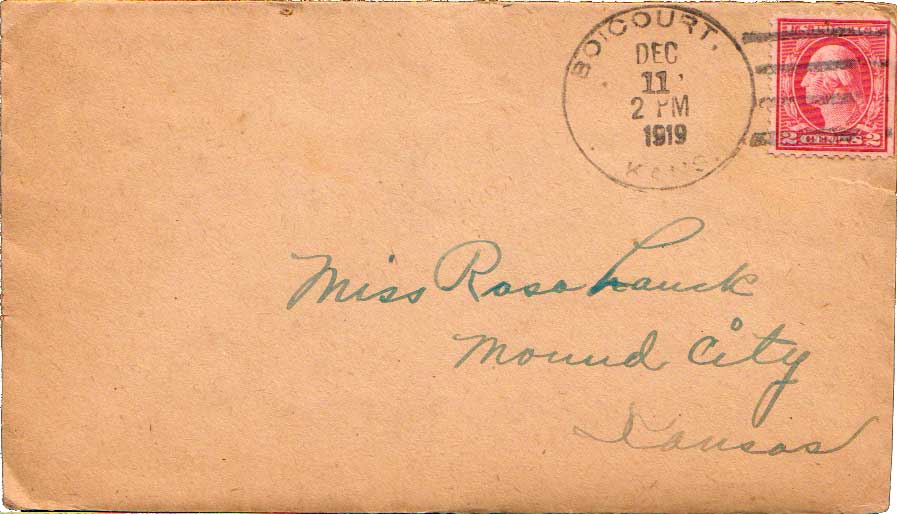 BOICOURT,
DEC
11
2 PM
1919
KANS.
U.S. POSTAGE
2 CENTS 2
Miss Rosa Lauck
Mound City
Kansas